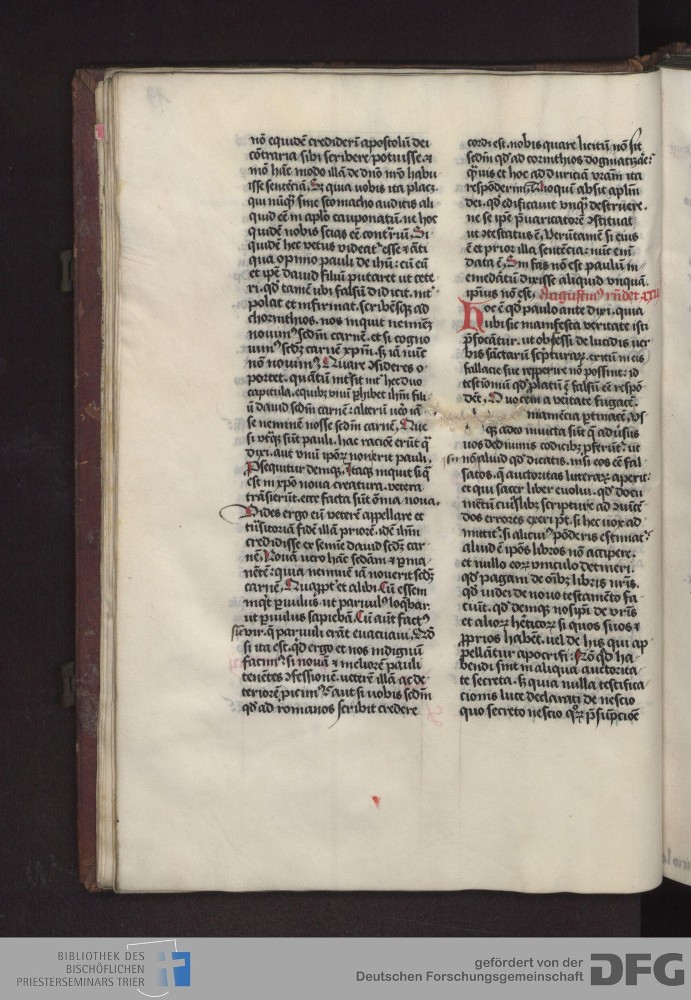 nō equidē credideri apostolū dei
cōtraria sibi scribere potuisse. et
mō hāc modo illā de dno nro habu
isse sentēciā. Sz quia uobis ita placz
qui nūqͣ sine stomacho auditis ali
quid eē in aplo cauponatū. ne hoc
quidē nobis scias eē contriū. Si
quidē hec vetus videatʳ esse et āti
qua opinio pauli de ihu: cū eū
et ipē dauid filiū putaret ut cete
ri. qd tamē ubi falsū didicit. intʳ
polat et infirmat. scribēsqz ad
chorinthios. nos inquit neminē
nouimꝰ scdm carnē. et si cogno
uimꝰ scdz carnē xpm. sz iā nūc
nō nouimꝰ. Quare ꝯsideres o
portet. quātū intsit intʳ hec duo
capitula. equibz vnū phibet ihm filiū
dauid scdm carnē: alterū uero iā
se neminē nosse scdm carnē. Que
si utqz sūt pauli. hac racioē erūt qͣ
dixi. aut vnū ipoꝝ nō erit pauli.
Psequitur deniqz. Itaqz inquit si qͣ
est in xpo noua creatura. vetera
trāsierūt. ecce facta sūt oīnia noua.
Vides ergo eū veterē appellare et
trāsitoriā fidē illā priorē. idē ihm
credidisse ex semie dauid scdz car
nē. Nouā uero hāc scdam et pma
nētē: quia neminē iā nouerit scdz
carnē. Quappt et alibi. Cū essem
inqt puulus ut paruulꝰ loqbar.
ut puulus sapiebā. Cū aut factꝰ
sū vir. q paruuli erāt euacuaui. Qd
si ita est. qd ergo et nos indignū
facimꝰ. si nouā et meliorē pauli
tenētes ꝯfessionē. ueterē illā ac de
teriorē picimꝰ: aut si uobis scdm
qd ad romanos scribit credere
cordi est. nobis quare licitū nō sit
scdm qd ad corinthios dogmatizare:
qͣuis et hoc ad duriciā vrām ita
respōderim. Alioqui absit aplm
dei. qd edificauit vnqͣ destruere.
ne se ipē pͥuaricatorē ꝯstituat
ut ꝯtestatus ē. Verūtamē si eius
ē et prior illa sentēcia: nūc emē
data ē. Sin fas nō est paulū in
emēdatū dixisse aliquid vnquā.
ipīus nō est. Augustinꝰ rn̄det
Hoc ē qd paulo ante dixi. quia
ubi sic manifesta veritate isti
pͣfocātur. ut obsessi dilucidis ver
bis sāctarū scpturaꝝ. exitū in eis
fallacie sue repperire nō possint: id
testioniū qd platū ē falsū eē respō
dēt. O uocem a veritate fugacē.
inamēcia ptinacē. Vs
qz adeo inuicta sūt q aduersus
uos de diuinis codicibꝫ pferūtʳ: ut
nō sit aliud qd dicatis. nisi eos eē fal
satos. q auctoritas litteraꝝ aperiri:
et qui sacer liber euolui. qd docu
mētū cuislibz scripture ad ꝯuincē
dos errores exeri pt. si hec uox ad
mittitʳ. si alicuiꝰ pōderis estimatʳ:
aliud ē ipōs libros nō accipere.
et nullo eoꝝ vinculo detineri.
qd pagani de oībz libris nris.
qd iudei de nouo testamēto fa
ciūt. qd deniqz nosipi de vris
et alioꝝ hēticoꝝ si quos suos et
pprios habēt. uel de hijs qui ap
pellātur apocrifi: Nō qd ha
bendi sint in aliqua auctorita
te secreta. sz quia nulla testifica
cionis luce declarati de nescio
quo secreto nescio qꝝ pͣsūpcioē
BIBLIOTHEK DES
BISCHÖFLICHEN
PRIESTERSEMINARS TRIER
gefördert von der
Deutschen Forschungsgemeinschaft
DFG